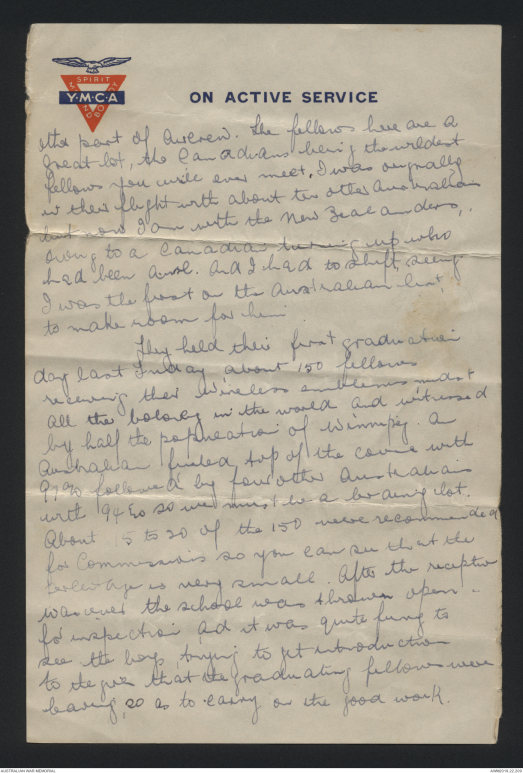 SPIRIT
MIND
BODY
Y·M·C·A
ON ACTIVE SERVICE
the part of Aircrew. The fellows here are a
great lot, the Canadians being the wildest
fellows you will ever meet, I was originally
in their flight with about ten other Australians
but now I am with the New Zealanders,
owing to a Canadian turning up who
had been awol. And I had to shift, seeing
I was the first on the Australian list,
to make room for him.
They held their first graduation
day last Friday about 150 fellows
receiving their wireless emblems midst
all the boloney in the world and witnessed
by half the population of Winnipeg. An
Australian finished top of the course with
97% followed by four other Australians
with 94% so we must be a brainy lot.
About 15 to 20 of the 150 were recommended
for Commissions so you can see that the
percentage is very small. After the reception
was over the school was thrown open
for inspection and it was quite funny to
see the boys trying to get introduction
to the girls that the graduating fellows were
leaving, so as to carry on the good work.
AUSTRALIAN WAR MEMORIAL